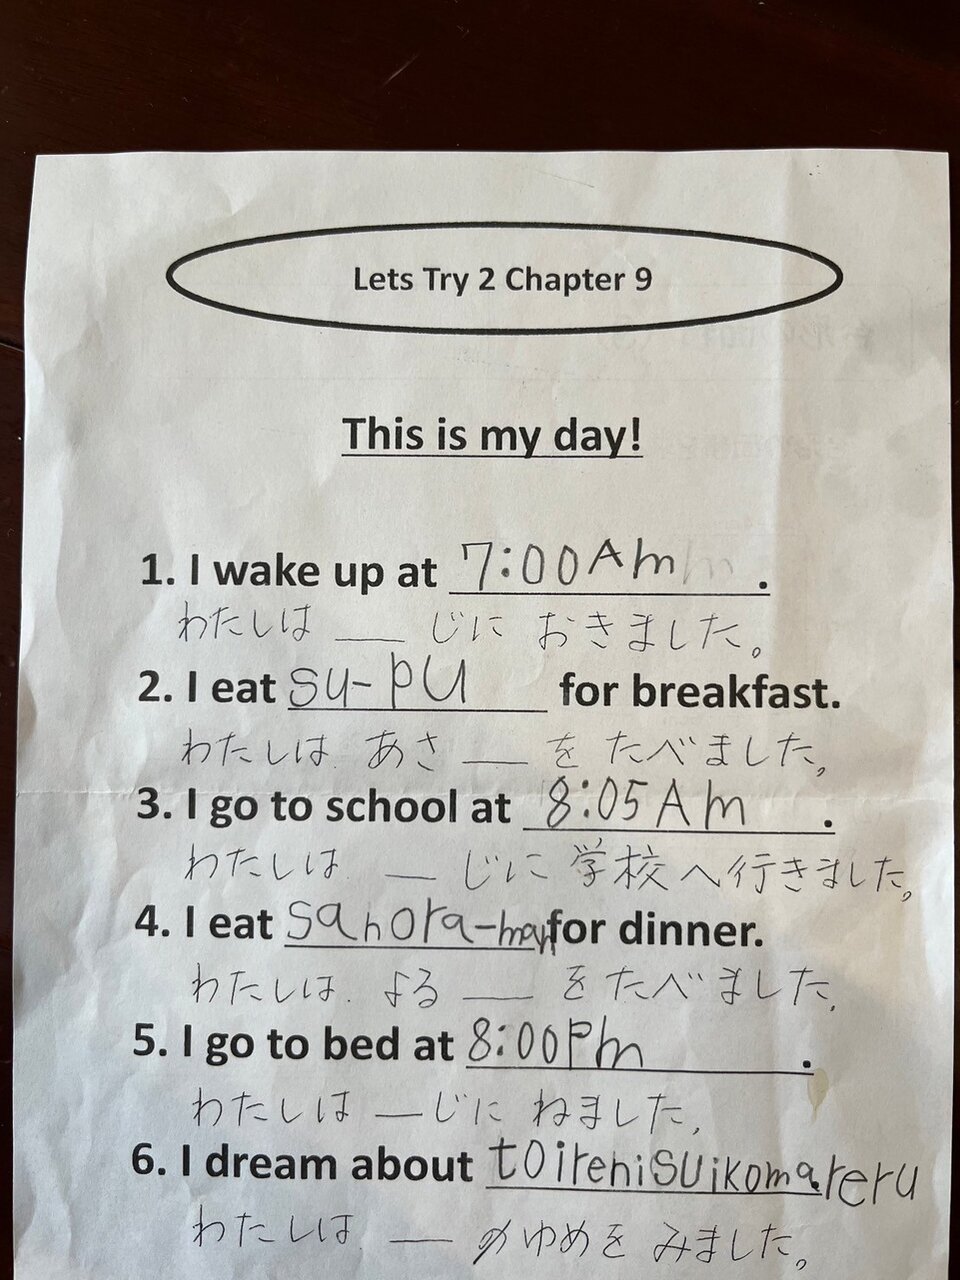 Lets Try 2 Chapter 9
This is my day!
1. I wake up at 7:00 Am.
わたしは ___ じに おきました。
2. I eat su-pu for breakfast.
わたしは あさ ___ を たべました。
3. I go to school at 8:05 Am.
わたしは ___ じに 学校へ行きました。
4. I eat sahora- for dinner.
わたしは よる ___ を たべました。
5. I go to bed at 8:00Pm.
わたしは ___ じに ねました。
6. I dream about toirenisuikomareru
わたしは ___ のゆめを みました。